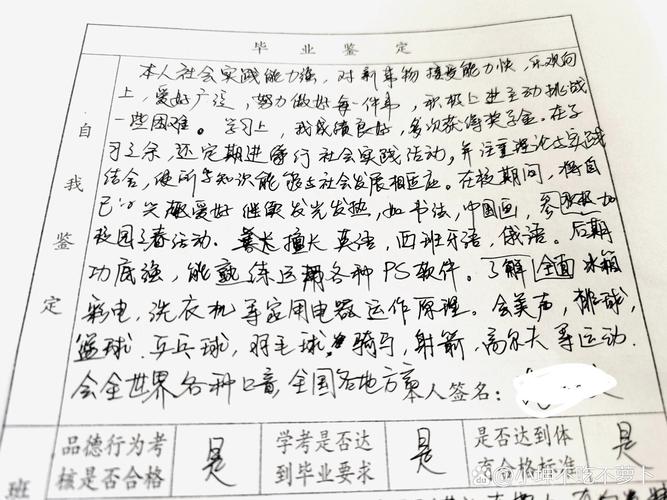 毕业鉴定
自我鉴定
本人社会实践能力强，对新事物接受能力快，乐观向
上，爱好广泛，努力做好每一件事，积极上进主动挑战
一些困难。学习上，我成绩良好，多次获得奖学金。在学
习之余，还定期进行社会实践活动，并注重理论与实践
结合，使所学知识能够与社会发展相适应。在校期间，将自
己的兴趣爱好继续发光发热，如书法，中国画，积极参加
校园青春活动。擅长英语，西班牙语，俄语。后期
功底强，能熟练运用各种PS软件。全面了解冰箱
彩电，洗衣机等家用电器运作原理。会美声，排球，
篮球，乒乓球，羽毛球，骑马，射箭，高尔夫等运动.
会全世界各种口音，全国各地方言
本人签名：
品德行为考核是否合格 是 学考是否达到毕业要求 是 是否达到体育合格标准 是
班